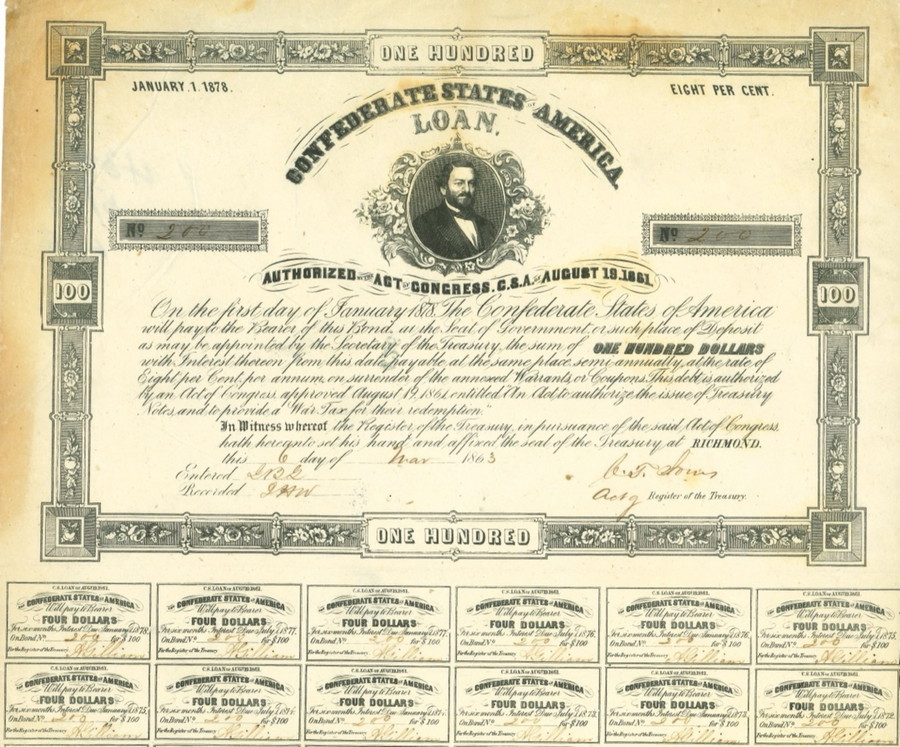 ONE HUNDRED
JANUARY. 1. 1878.
EIGHT PER CENT.
CONFEDERATE STATES OF AMERICA.
LOAN.
No 200
No 200
AUTHORIZED BY THE ACT OF CONGRESS, C.S.A. OF AUGUST 19.1861.
100
100
On the first day of January 1878. The Confederate States of America
will pay to the Bearer of this Bond, at the Seat of Government, or such place of Deposit
as may be appointed by the Secretary of the Treasury, the sum of ONE HUNDRED DOLLARS
with Interest thereon from this date, payable at the same place semi annually, at the rate of
Eight per Cent, per annum, on surrender of the annexed Warrants, or Coupons. This debt is authorized
by an Act of Congress, approved August 19, 1861, entitled "An Act to authorize the issue of Treasury
Notes, and to provide a War Tax for their redemption."
In Witness whereof the Register of the Treasury, in pursuance of the said Act of Congress,
hath hereunto set his hand, and affixed the seal of the Treasury, at RICHMOND.
this 6 day of Mar 1863
Entered
Recorded
C. T. Jones
Actg Register of the Treasury.
ONE HUNDRED
C.S. LOAN OF AUGUST 19, 1861.
The CONFEDERATE STATES OF AMERICA
Will pay to Bearer
FOUR DOLLARS
For six months Interest Due January 1, 1878,
On Bond No 200 for $100
For the Register of the Treasury
C.S. LOAN OF AUGUST 19, 1861.
The CONFEDERATE STATES OF AMERICA
Will pay to Bearer
FOUR DOLLARS
For six months Interest Due July 1, 1877,
On Bond No 200 for $100
For the Register of the Treasury
C.S. LOAN OF AUGUST 19, 1861.
The CONFEDERATE STATES OF AMERICA
Will pay to Bearer
FOUR DOLLARS
For six months Interest Due January 1, 1877,
On Bond No 200 for $100
For the Register of the Treasury
C.S. LOAN OF AUGUST 19, 1861.
The CONFEDERATE STATES OF AMERICA
Will pay to Bearer
FOUR DOLLARS
For six months Interest Due July 1, 1876,
On Bond No 200 for $100
For the Register of the Treasury
C.S. LOAN OF AUGUST 19, 1861.
The CONFEDERATE STATES OF AMERICA
Will pay to Bearer
FOUR DOLLARS
For six months Interest Due January 1, 1876,
On Bond No 200 for $100
For the Register of the Treasury
C.S. LOAN OF AUGUST 19, 1861.
The CONFEDERATE STATES OF AMERICA
Will pay to Bearer
FOUR DOLLARS
For six months Interest Due July 1, 1875,
On Bond No for $100
For the Register of the Treasury
C.S. LOAN OF AUGUST 19, 1861.
The CONFEDERATE STATES OF AMERICA
Will pay to Bearer
FOUR DOLLARS
For six months Interest Due January 1, 1875,
On Bond No 200 for $100
For the Register of the Treasury
C.S. LOAN OF AUGUST 19, 1861.
The CONFEDERATE STATES OF AMERICA
Will pay to Bearer
FOUR DOLLARS
For six months Interest Due July 1, 1874,
On Bond No for $100
For the Register of the Treasury
C.S. LOAN OF AUGUST 19, 1861.
The CONFEDERATE STATES OF AMERICA
Will pay to Bearer
FOUR DOLLARS
For six months Interest Due January 1,
On Bond No 200 for $100
For the Register of the Treasury
C.S. LOAN OF AUGUST 19, 1861.
The CONFEDERATE STATES OF AMERICA
Will pay to Bearer
FOUR DOLLARS
For six months Interest Due July 1, 1873,
On Bond No for $100
For the Register of the Treasury
C.S. LOAN OF AUGUST 19, 1861.
The CONFEDERATE STATES OF AMERICA
Will pay to Bearer
FOUR DOLLARS
For six months Interest Due January 1, 1873,
On Bond No 200 for $100
For the Register of the Treasury
C.S. LOAN OF AUGUST 19, 1861.
The CONFEDERATE STATES OF AMERICA
Will pay to Bearer
FOUR DOLLARS
For six months Interest Due July 1, 1872,
On Bond No 200 for $100
For the Register of the Treasury